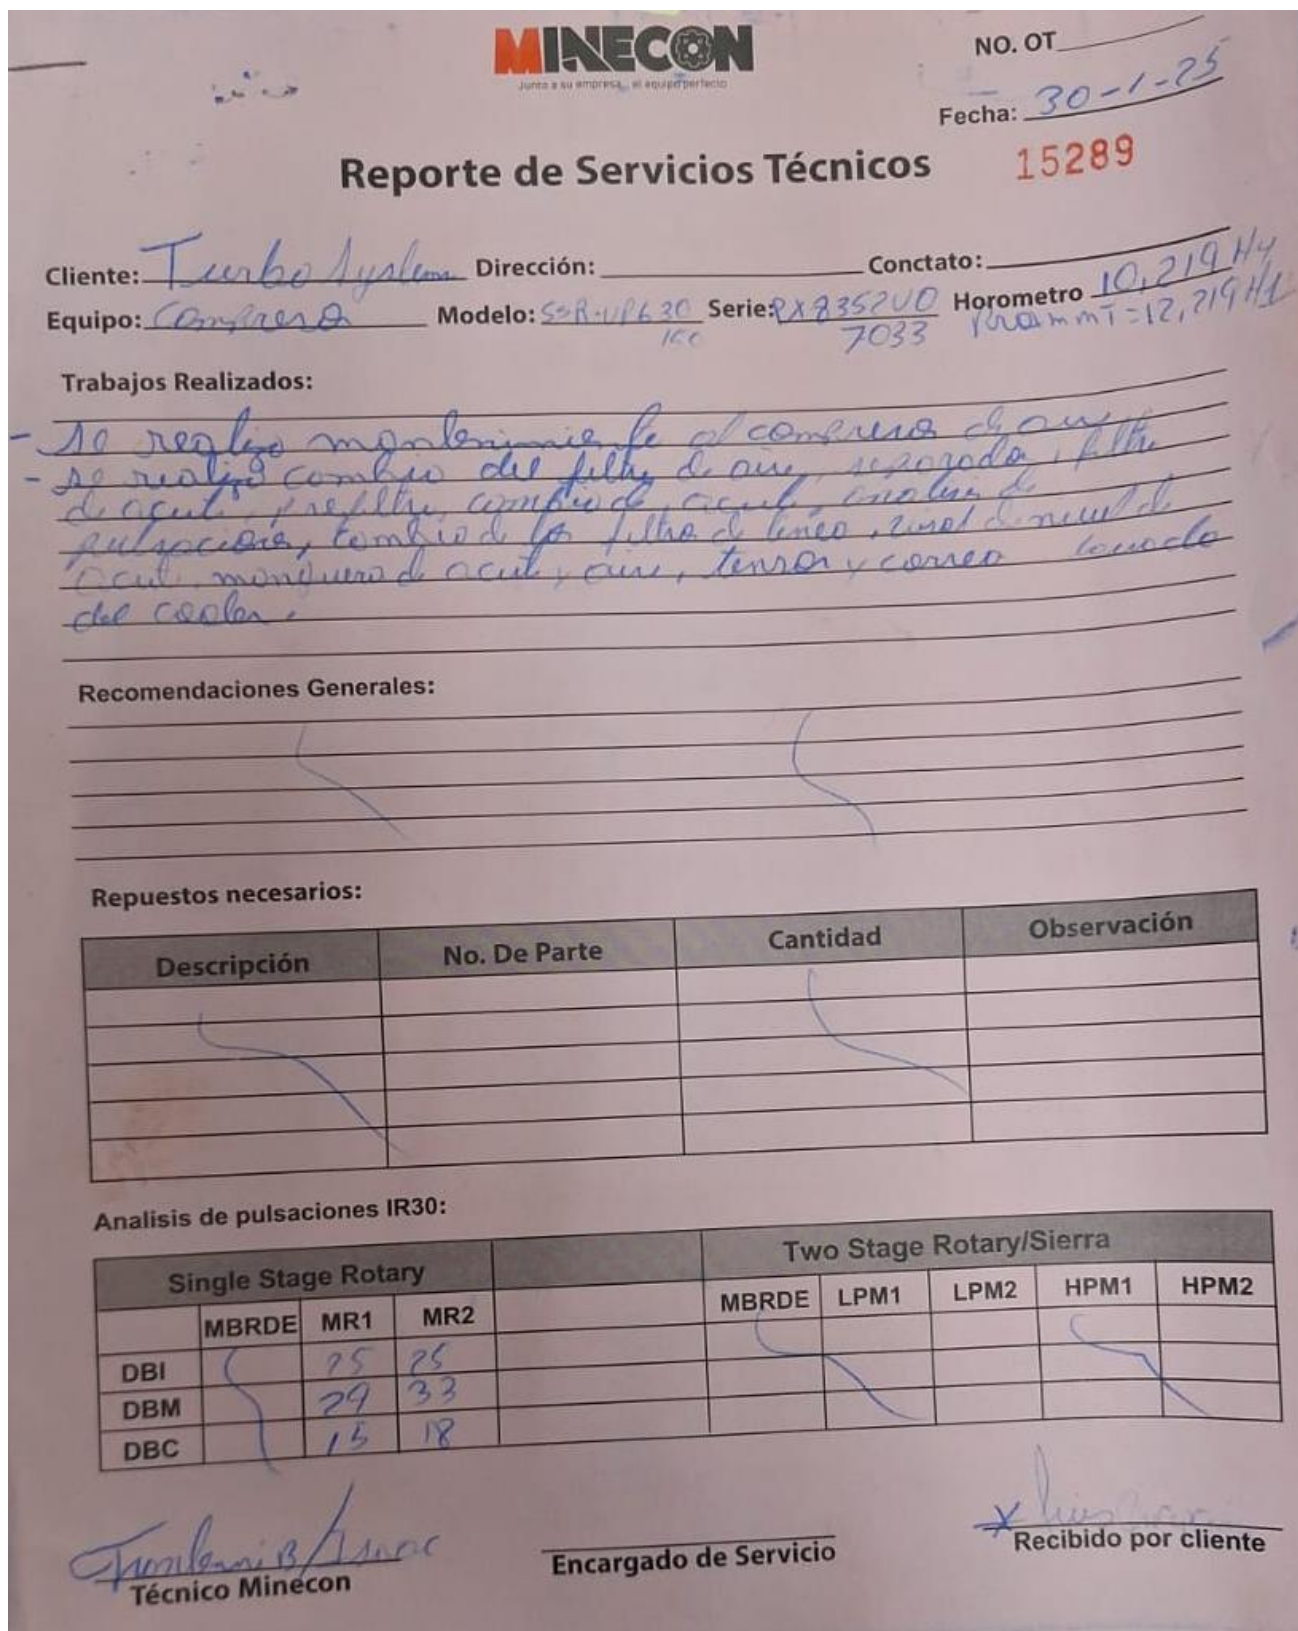 MINECON
Junto a su empresa... el equipo perfecto
NO. OT
Fecha: 30-1-25
Reporte de Servicios Técnicos 15289
Cliente: Turbo System Dirección: Conctato:
Equipo: Compresor Modelo: SSR-UP6 30 Serie: PX8352U0 Horometro 10,219 H
7033 =12,219 H
Trabajos Realizados:
- se realizo mantenimiento al compresor de aire
- se realizó cambio del filtro de aire, separador, filtro
de aceite, prefiltro, cambio de aceite, analisis de
pulsaciones, cambio de los filtro de linea, visol de nivel de
aceite, manguera de aceite y aire, tensor y correa lavado
del cooler.
Recomendaciones Generales:
Repuestos necesarios:
Descripción No. De Parte Cantidad Observación
Analisis de pulsaciones IR30:
Single Stage Rotary Two Stage Rotary/Sierra
MBRDE MR1 MR2 MBRDE LPM1 LPM2 HPM1 HPM2
DBI 25 25
DBM 29 33
DBC 15 18
Técnico Minecon Encargado de Servicio Recibido por cliente